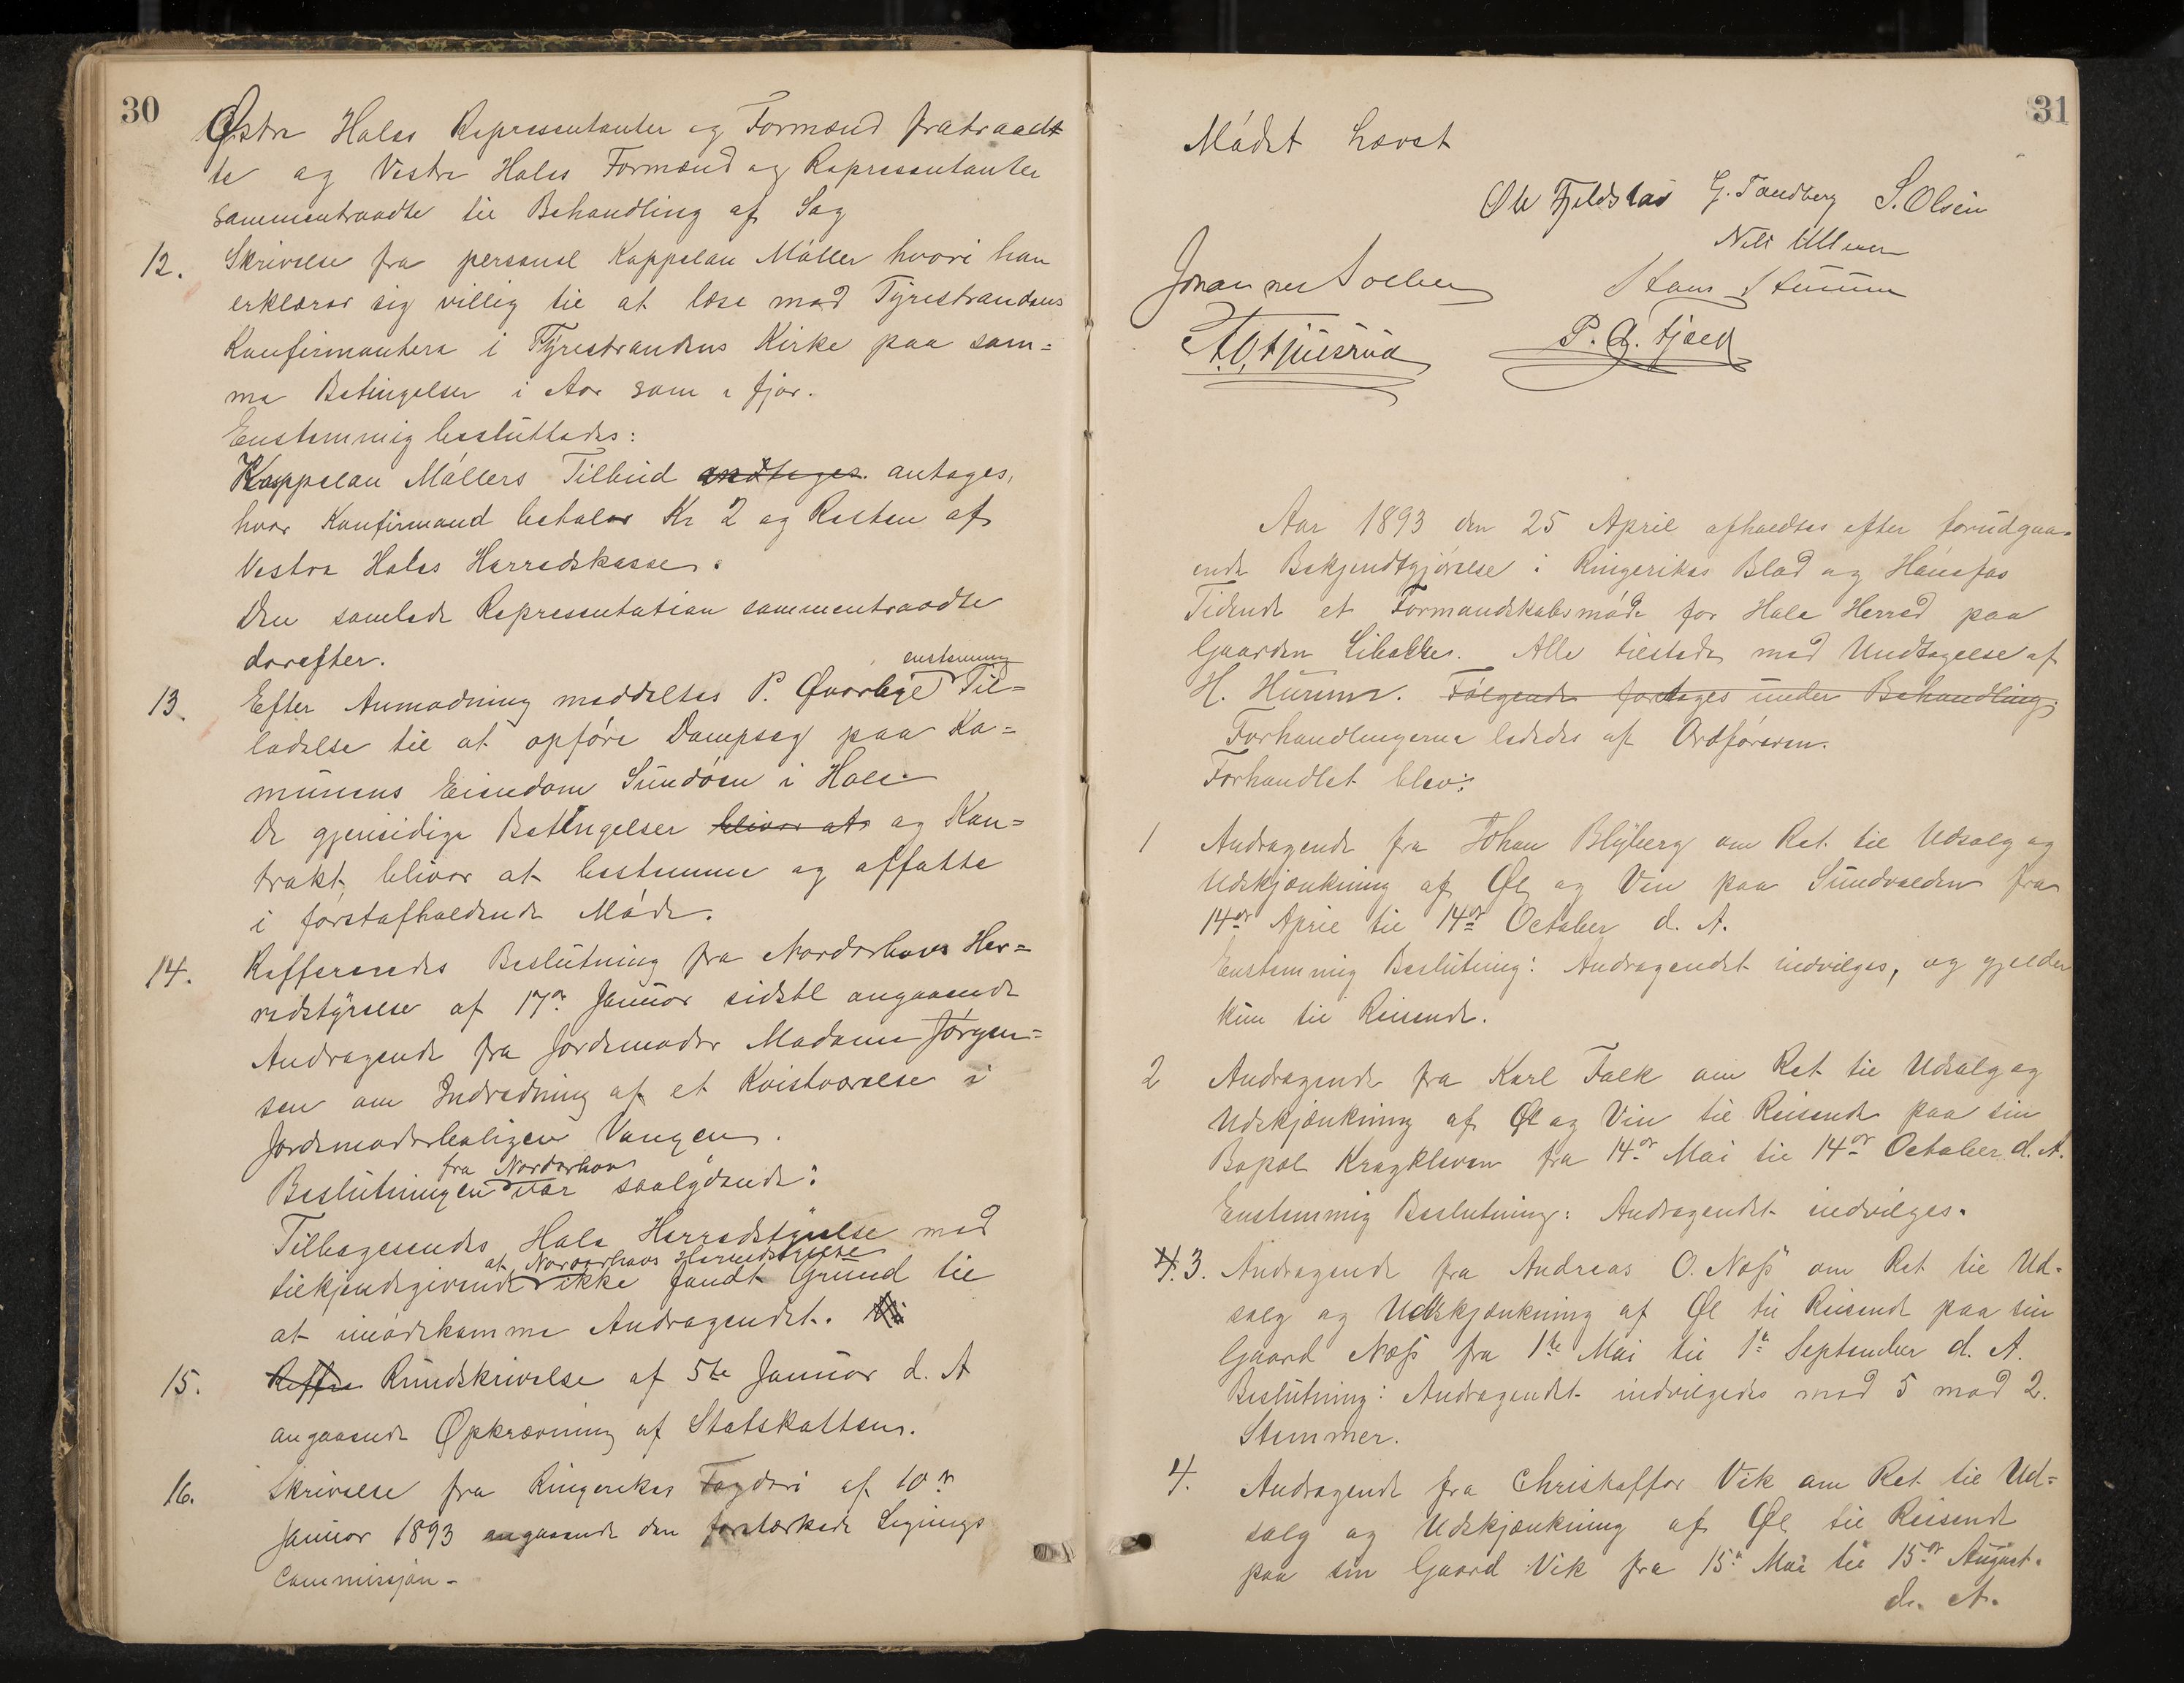 30
Østre Holes Repressentanter og Formænd fratraadt
te og Vestre Holes Formænd og Repressentanter
sammentraadte til Behandling af Sag
12. Skrivelse fra personel Kappelan Møller hvori han
erklærer sig villig til at læse med Tyrestrandens
Konfirmanter i Tyrestrandens Kirke paa sam=
me Betingelser i Aar som i fjor.
Enstemmig besluttedes:
Kappelan Møllers Tilbud antages,
hver Konfirmand betaler Kr 2 og Resten af
Vestre Holes Herredskasse.
Den samlede Representation sammentraadte
derefter.
enstemmig
13. Efter Anmodning meddeltes P. Til=
ladelse til at opføre Dampsag paa Ko=
munens Eiendom Sundøen i Hole
De gjensidige Betingelser bliver at og Kon=
trakt bliver at bestemme og affatte
i førstafholdende Møde.
14. Refferesedes Beslutning fra Norderhovs Her=
redstyrelse af 17de Januar sidstl angaaende
Andragende fra Jordemoder Madame Jørgen=
sen om Indredning af et Kvistværelse i
Jordemoderboligen Vangen.
fra Norderhov
Beslutningen var saalydende:
Tilbagesendes Hole Herredstyrelse med
at Norderhovs Herredstyrelse
tilkjendegivende ikke fandt Grund til
at imødekomme Andragendet.
15. Reffre Rundskrivelse af 5te Januar d. A
angaaende Opkrævning af Statskatten.
16. Skrivelse fra Ringerikes Fogderi af 10de
Januar 1893 angaaende den forstærkede Lignings
Commissjon -
31
Mødet hævet
Ole Fjeldstad G. Tandberg S. Olsen
Nils Ullern
Johannes Solberg Hans Hurum
P. G. Fjeld
Aar 1893 den 25 April afholdtes efter forudgaa-
ende Bekjendtgjørelse i Ringerikes Blad og Hønefos
Tidende et Formandskabsmøde for Hole Herred paa
Gaarden Libakke. Alle tilstede med Undtagelse af
H. Hurum. Følgende foretages under Behandling:
Forhandlingerne lededes af Ordføreren.
Forhandlet blev:
1 Andragende fra Johan Blyberg om Ret til Udsalg og
Udskjænkning af Øl og Vin paa Sundvolden fra
14de April til 14de October d. A.
Enstemmig Beslutning: Andragendet indvilges, og gjelder
kun til Reisende.
2 Andragende fra Karl Falk om Ret til Udsalg og
Udskjænkning af Øl og Vin til Reisende paa sin
Bopæl Kragkleven fra 14de Mai til 14de October d. A.
Enstemmig Beslutning: Andragendet indvilges.
3. Andragende fra Andreas O. Næss om Ret til Ud-
salg og Udskjænkning af Øl til Reisende paa sin
Gaard Næss fra 1te Mai til 1te September d. A.
Beslutning: Andragendet indvilgedes med 5 mod 2.
Stemmer.
4. Andragende fra Christoffer Vik om Ret til Ud=
salg og Udskjænkning af Øl til Reisende
paa sin Gaard Vik fra 15de Mai til 15de August.
d. A.